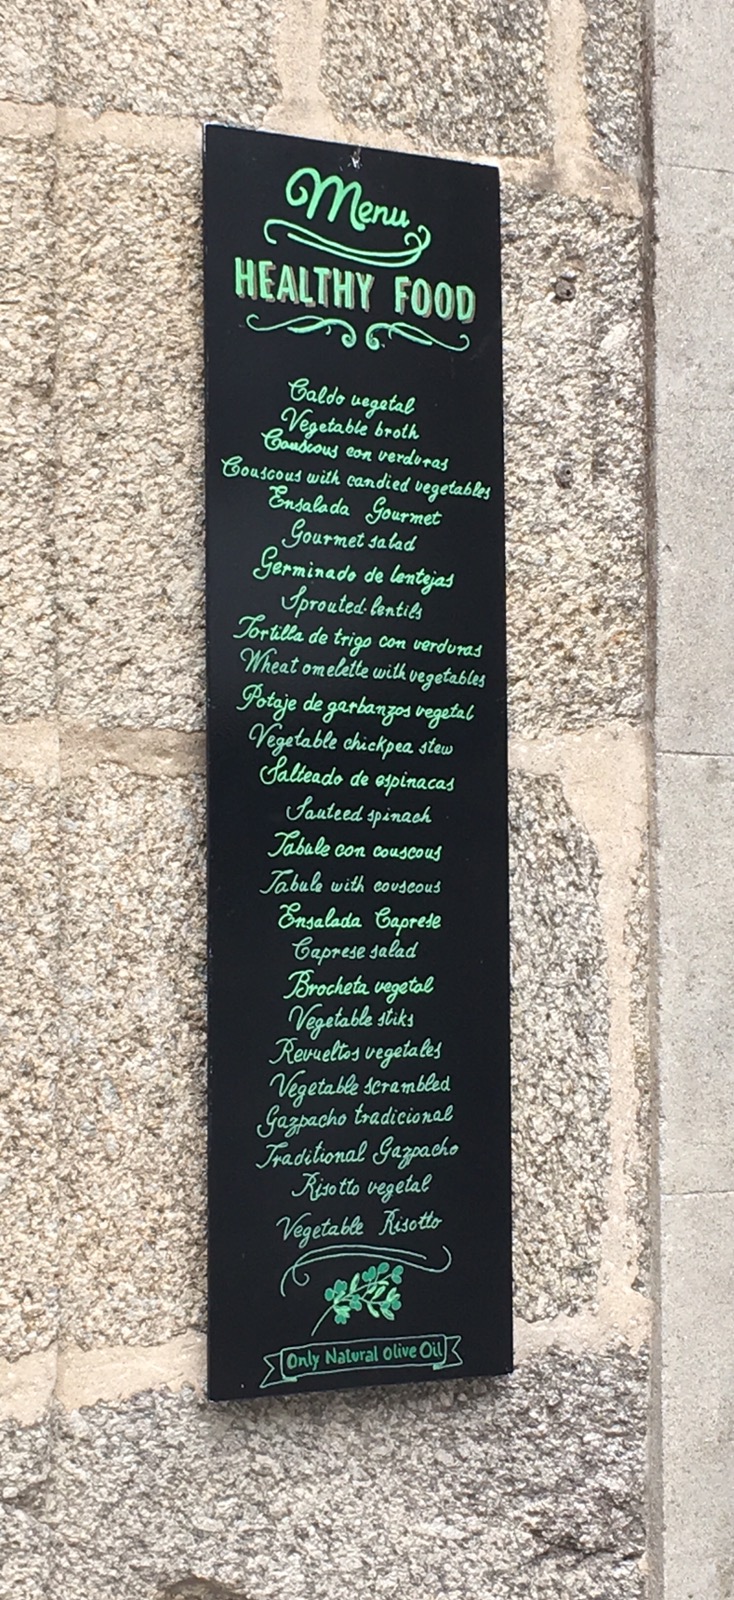 Menu
HEALTHY FOOD
Caldo vegetal
Vegetable broth
Couscous con verduras
Couscous with candied vegetables
Ensalada Gourmet
Gourmet salad
Germinado de lentejas
Sprouted lentils
Tortilla de trigo con verduras
Wheat omelette with vegetables
Potaje de garbanzos vegetal
Vegetable chickpea stew
Salteado de espinacas
Sauteed spinach
Tabule con couscous
Tabule with couscous
Ensalada Caprese
Caprese salad
Brocheta vegetal
Vegetable stiks
Revueltos vegetales
Vegetable scrambled
Gazpacho tradicional
Traditional Gazpacho
Risotto vegetal
Vegetable Risotto
Only Natural Olive Oil